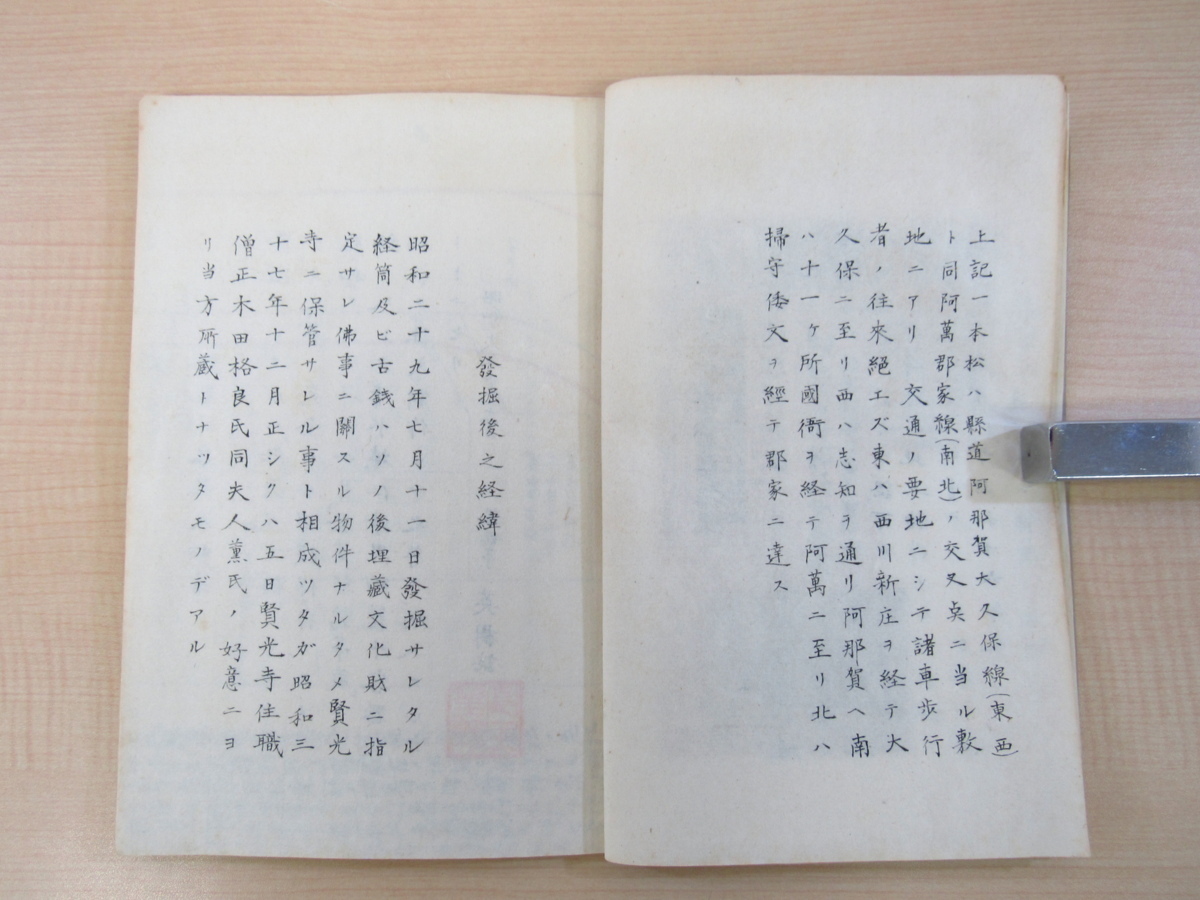 上記一本松ハ縣道阿那賀大久保線(東西)
ト同阿萬郡家線(南北)ノ交叉点ニ当ル敷
地ニアリ交通ノ要地ニシテ諸車歩行
者ノ往來絕エズ東ハ西川新庄ヲ経テ大
久保ニ至リ西ハ志知ヲ通リ阿那賀ヘ南
ハ十一ケ所國衙ヲ経テ阿萬ニ至リ北ハ
掃守倭文ヲ經テ郡家ニ達ス
發掘後之経緯
昭和二十九年七月十一日發掘サレタル
経筒及ビ古錢ハソノ後埋藏文化財ニ指
定サレ佛事ニ關スル物件ナルタメ賢光
寺ニ保管サレル事ト相成ツタガ昭和三
十七年十二月正シクハ五日賢光寺住職
僧正木田格良氏同夫人薰氏ノ好意ニヨ
リ当方所藏トナツタモノデアル